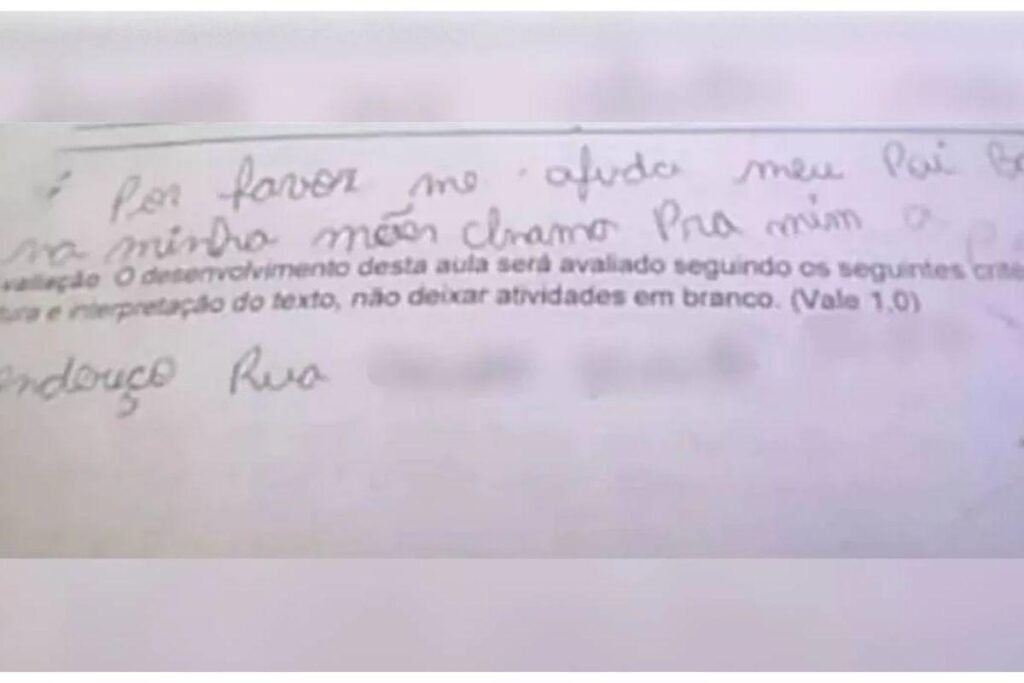 Por favor me ajuda meu Pai
na minha mãe chamo Pra mim a
valiação O desenvolvimento desta aula será avaliado seguindo os seguintes crité
tura e interpretação do texto, não deixar atividades em branco. (Vale 1,0)
endouço Rua